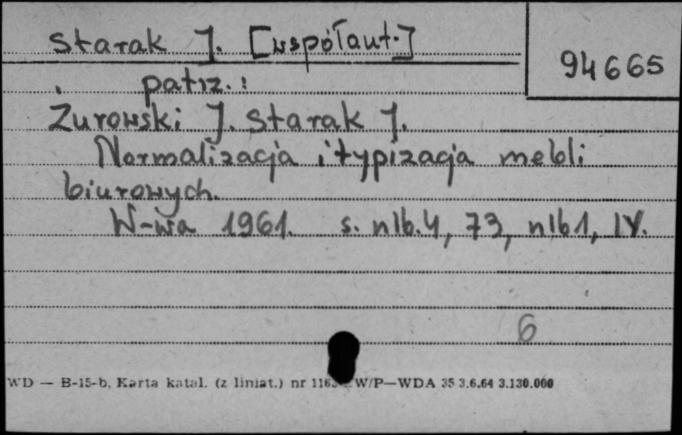 Starak J. [współaut.]
94665
patrz.:
Żurowski J. Starak J.
Normalizacja i typizacja mebli
biurowych.
W-wa 1961. s. nlb.4, 73, nlb1, IV.
6
WD — B-15-b, Karta katal. (z liniat.) nr W/P—WDA 35 3.6.64 3.130.000